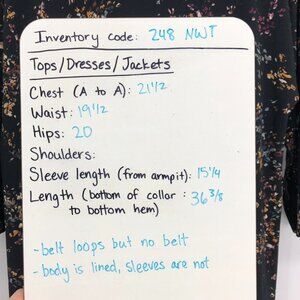 Inventory code: 248 NWT
Tops/Dresses/Jackets
Chest (A to A): 21 1/2
Waist: 19 1/2
Hips: 20
Shoulders:
Sleeve length (from armpit): 15 1/4
Length (bottom of collar : 36 3/8
to bottom hem)
- belt loops but no belt
- body is lined, sleeves are not